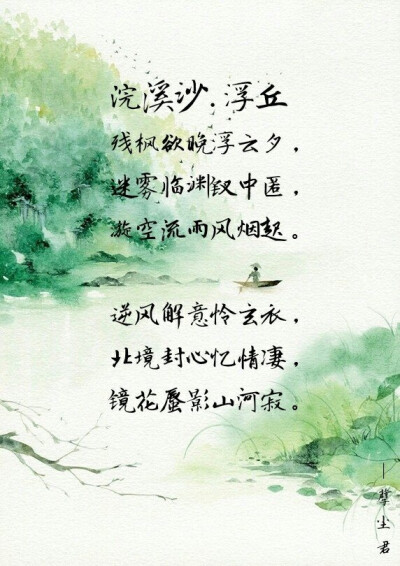 浣溪沙.浮丘
残枫欲晚浮云夕，
迷雾临渊钗中匿，
漩空流雨风烟起。
逆风解意怜玄衣，
北境封心忆情凄，
镜花蜃影山河寂。
—孽尘君